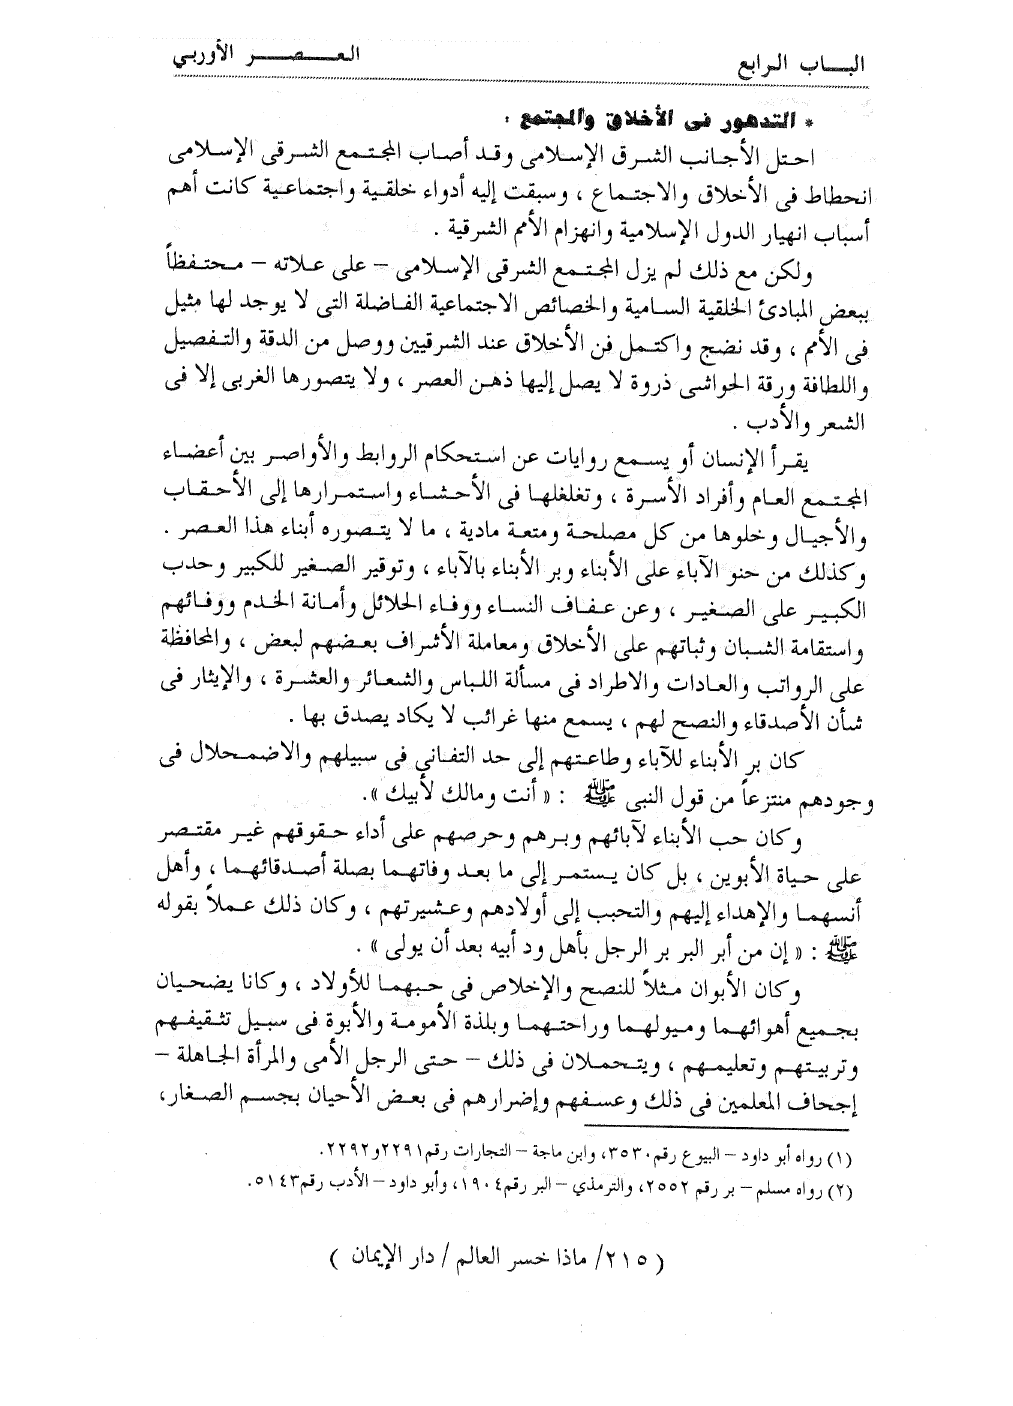 الباب الرابع
العصر الأوربي
* التدهور فى الأخلاق والمجتمع :
احتل الأجانب الشرق الإسلامى وقد أصاب المجتمع الشرقى الإسلامى
انحطاط فى الأخلاق والاجتماع ، وسبقت إليه أدواء خلقية واجتماعية كانت أهم
أسباب انهيار الدول الإسلامية وانهزام الأمم الشرقية .
ولكن مع ذلك لم يزل المجتمع الشرقى الإسلامى – على علاته – محتفظاً
ببعض المبادئ الخلقية السامية والخصائص الاجتماعية الفاضلة التى لا يوجد لها مثيل
فى الأمم ، وقد نضج واكتمل فن الأخلاق عند الشرقيين ووصل من الدقة والتفصيل
واللطافة ورقة الحواشى ذروة لا يصل إليها ذهن العصر ، ولا يتصورها الغربى إلا فى
الشعر والأدب .
يقرأ الإنسان أو يسمع روايات عن استحكام الروابط والأواصر بين أعضاء
المجتمع العام وأفراد الأسرة ، وتغلغلها فى الأحشاء واستمرارها إلى الأحقاب
والأجيال وخلوها من كل مصلحة ومتعة مادية ، ما لا يتصوره أبناء هذا العصر .
وكذلك من حنو الآباء على الأبناء وبر الأبناء بالآباء ، وتوقير الصغير للكبير وحدب
الكبير على الصغير ، وعن عفاف النساء ووفاء الحلائل وأمانة الخدم ووفائهم
واستقامة الشبان وثباتهم على الأخلاق ومعاملة الأشراف بعضهم لبعض ، والمحافظة
على الرواتب والعادات والاطراد فى مسألة اللباس والشعائر والعشرة ، والإيثار فى
شأن الأصدقاء والنصح لهم ، يسمع منها غرائب لا يكاد يصدق بها .
كان بر الأبناء للآباء وطاعتهم إلى حد التفانى فى سبيلهم والاضمحلال فى
وجودهم منتزعاً من قول النبى ﷺ : « أنت ومالك لأبيك ».
وكان حب الأبناء لآبائهم وبرهم وحرصهم على أداء حقوقهم غير مقتصر
على حياة الأبوين ، بل كان يستمر إلى ما بعد وفاتهما بصلة أصدقائهما ، وأهل
أنسهما والإهداء إليهم والتحبب إلى أولادهم وعشيرتهم ، وكان ذلك عملاً بقوله
ﷺ : « إن من أبر البر بر الرجل بأهل ود أبيه بعد أن يولى » .
وكان الأبوان مثلاً للنصح والإخلاص فى حبهما للأولاد ، وكانا يضحيان
بجميع أهوائهما وميولهما وراحتهما وبلذة الأمومة والأبوة فى سبيل تثقيفهم
وتربيتهم وتعليمهم ، ويتحملان فى ذلك – حتى الرجل الأمى والمرأة الجاهلة –
إجحاف المعلمين فى ذلك وعسفهم وإضرارهم فى بعض الأحيان بجسم الصغار،
(١) رواه أبو داود – البيوع رقم ٣٥٣٠، وابن ماجة – التجارات رقم ٢٢٩١و٢٢٩٢.
(٢) رواه مسلم – بر رقم ٢٥٥٢، والترمذي – البر رقم ١٩٠٤، وأبو داود – الأدب رقم ٥١٤٣.
( ٢١٥/ ماذا خسر العالم / دار الإيمان )